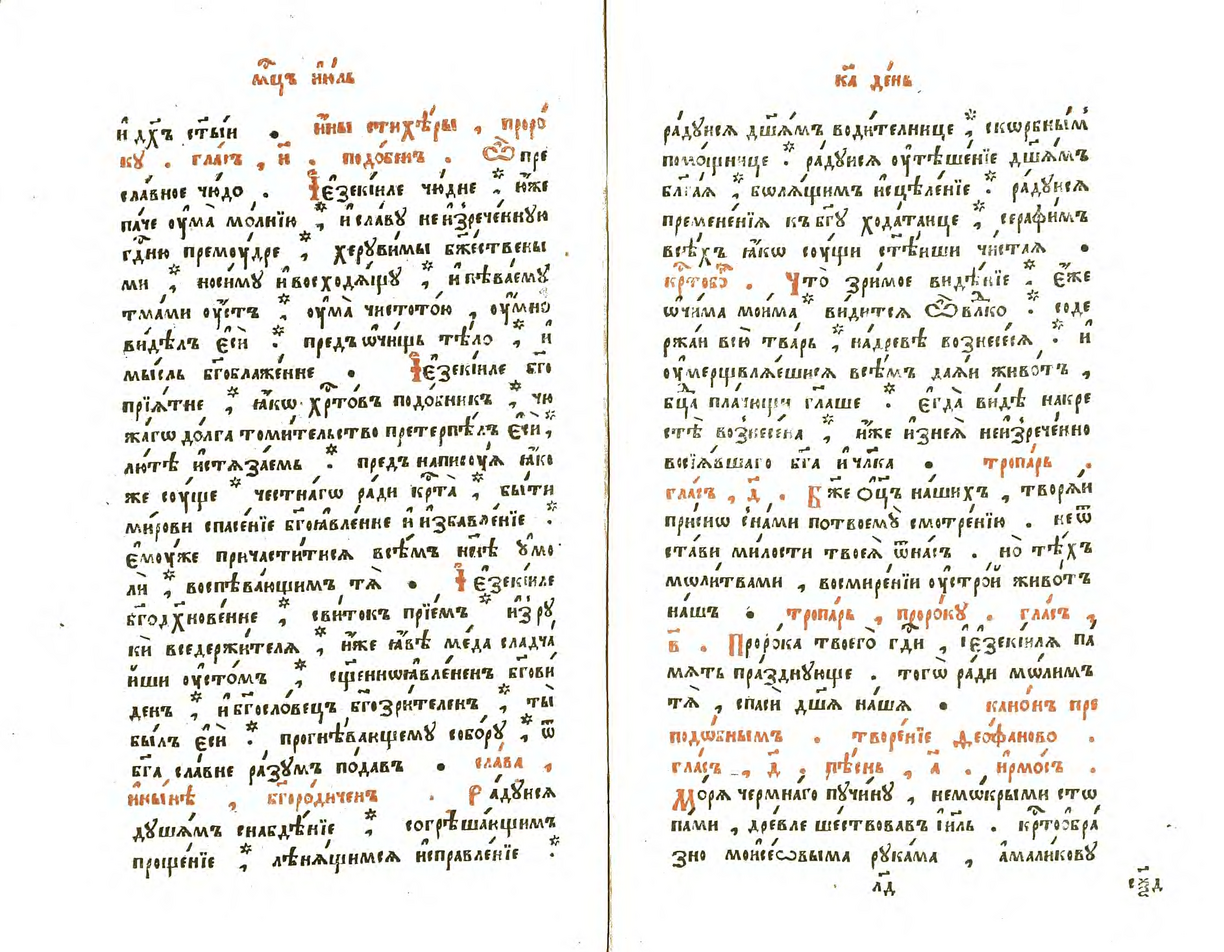 мц҃ъ і҆ю́ль
и҆ дх҃ъ ст҃ы́и . и҆́ны стихѣ́ры , проро́
ку . гла́съ , и҃ . подо́бенъ . Ѽ пре
сла́вное чю́до . І҆езекі́иле чю́дне , * и҆́же
па́че ᲂу҆ма̀ мо́лнїю , * и҆ сла́вꙋ неи҆зрече́ннꙋю
гд҃ню премᲂу́дре , * херꙋви́мы бж҃е́ствены
ми , * носи́мꙋ и҆ восходѧ́щꙋ , * и҆ пѣва́емꙋ
тма́ми ᲂу҆́стъ , * ᲂу҆ма̀ чистото́ю , ᲂу҆́мно
ви́дѣлъ є҆сѝ . * пре́дъ ѡ҆чи́щь тѣ́ло , * и҆
мы́сль бг҃обла́женне . І҆езекі́иле бг҃о
прїѧ́тне , * ꙗ҆́кѡ хрт҃о́въ подо́бникъ , * чю
жа́гѡ до́лга томи́тельство претерпѣ́лъ є҆сѝ , *
лю́тѣ и҆стѧза́емь . * пре́дъ написᲂу́ѧ ꙗ҆́ко
же сᲂу́ще * честна́гѡ ра́ди крт҃а̀ , * бы́ти
ми́рови спасе́нїе бг҃оꙗвле́нне и҆ и҆збавле́нїе . *
є҆мᲂу́же причасти́тисѧ всѣ́мъ нн҃ѣ ᲂу҆мо
лѝ , * воспѣва́ющимъ тѧ̀ . І҆езекі́иле
бг҃одх҃нове́нне , * сви́токъ прїе́мъ * и҆з рꙋ
кѝ вседержи́телѧ , * и҆́же ꙗ҆́вѣ ме́да сладча́
йши ᲂу҆сто́мъ , * сщ҃е́нноꙗвле́ненъ бг҃ови
денъ , * и҆ бг҃осло́вецъ бг҃озри́теленъ , * ты̀
бы́лъ є҆сѝ . * прогнѣ́вавшемꙋ собо́рꙋ , * ѿ
бг҃а сла́вне ра́зꙋмъ пода́въ . сла́ва ,
и҆ны́нѣ , бг҃оро́диченъ . Ра́дꙋисѧ
дꙋша́мъ снабдѣ́нїе , * согрѣша́ющимъ
проще́нїе , * лѣнѧ́щимсѧ и҆справле́нїе . *
к҃а де́нь
ра́дꙋисѧ дш҃а́мъ води́телнице , * ско́рбнымъ
помо́щнице . * ра́дꙋисѧ ᲂу҆тѣше́нїе дш҃а́мъ
бл҃га́ѧ , * болѧ́щимъ и҆сцѣле́нїе . * ра́дꙋисѧ
премене́нїѧ къ бг҃ꙋ хода́таице , * серафи́мъ
всѣ́хъ ꙗ҆́кѡ сᲂу́щи ст҃ѣ́иши чи́стаѧ .
крт҃обо҃ . Что̀ зри́мое видѣ́нїе . * є҆́же
ѡ҆чи́ма мои́ма * ви́дитсѧ Ѽ влк҃о . * соде
ржа́и всю̀ тва́рь , * на дре́вѣ вознесе́сѧ . * и҆
ᲂу҆мерщвлѧ́ешисѧ всѣ́мъ даѧ́и живо́тъ ,
бц҃а пла́чищи гл҃аше . * є҆гда̀ ви́дѣ на кре
стѣ̀ вознесе́на , * и҆́же и҆знеѧ̀ неи҆зрече́нно
восїѧ́вшаго бг҃а и҆ чл҃ка . тропа́рь .
гла́съ , д҃ . Бж҃е ѻ҆ц҃ъ на́шихъ , творѧ́и
при́сно с на́ми по твоемꙋ̀ смотре́нїю . не ѿ
ста́ви ми́лости твоеѧ̀ ѿ на́съ . но̀ тѣ́хъ
мѡли́твами , в смире́нїи ᲂу҆стро́й живо́тъ
на́шъ . тропа́рь , проро́кꙋ . гла́съ ,
в҃ . Проро́ка твоего̀ гд҃и , і҆езекі́илѧ па́
мѧть пра́зднꙋюще . того̀ ра́ди мо́лимъ
тѧ̀ , спасѝ дш҃а на́шѧ . кано́нъ пре
подо́бнымъ . творе́нїе Ѳеофа́ново .
гла́съ , д҃ . пѣ́снь , а҃ . и҆рмо́съ .
Мо́рѧ чермна́го пꙋчи́нꙋ , немо́крыми сто
па́ми , дре́вле ше́ствовавъ і҆и҃ль . крт҃ообра́
зно моисе́ѡвыма рꙋка́ма , а҆мали́ковꙋ
лд